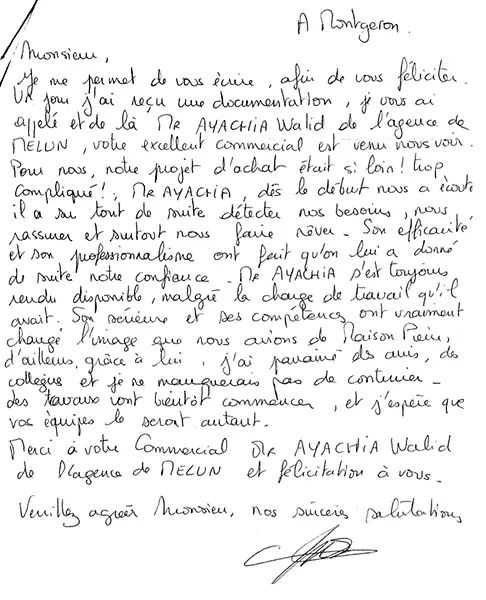 A Montgeron.
Monsieur,
Je me permet de vous écrire, afin de vous féliciter.
Un jour j'ai reçu une documentation, je vous ai
appelé et de là MR AYACHIA Walid de l'agence de
MELUN, votre excellent commercial est venu nous voir.
Pour nous, notre projet d'achat était si loin! trop
compliqué!, MR AYACHIA, dès le début nous a écouté
il a su tout de suite détecter nos besoins, nous
rassurer et surtout nous faire rêver. Son efficacité
et son professionnalisme ont fait qu'on lui a donné
de suite notre confiance. MR AYACHIA s'est toujours
rendu disponible, malgré la charge de travail qu'il
avait. Son sérieux et ses compétences ont vraiment
changé l'image que nous avions de Maison Pierre,
d'ailleurs, grâce à lui, j'ai parrainé des amis, des
collègues et je ne manquerais pas de continuer -
des travaux vont bientôt commencer, et j'espère que
vos équipes le seront autant.
Merci à votre Commercial MR AYACHIA Walid
de l'agence de MELUN et félicitation à vous.
Veuillez agréer Monsieur, nos sincères salutations